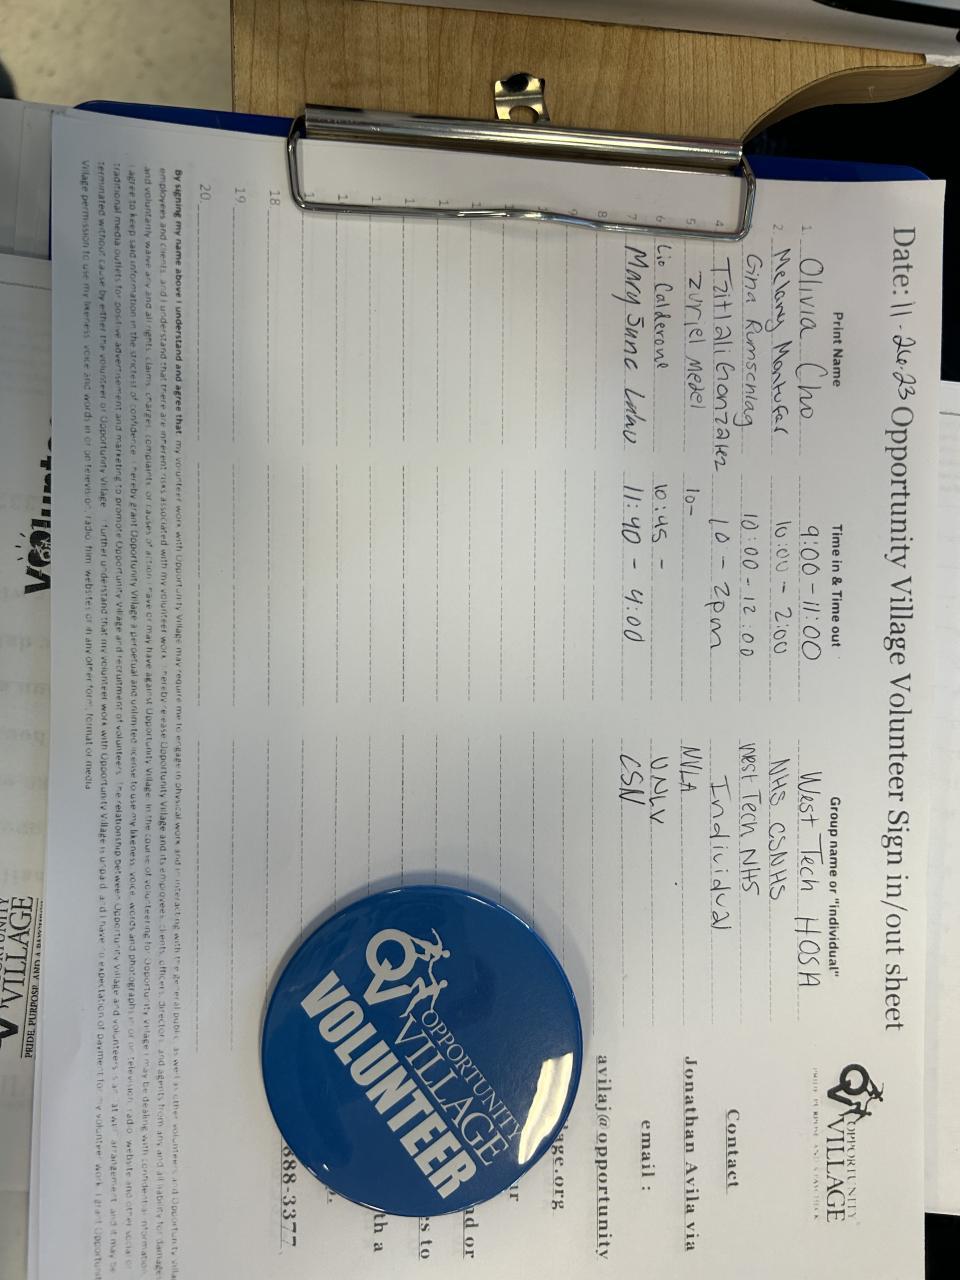 Date: 11-26-23 Opportunity Village Volunteer Sign in/out sheet
OPPORTUNITY
VILLAGE
Print Name Time in & Time out Group name or "individual"
1. Olivia Cho 9:00-11:00 West Tech HOSA
2. Melany Montufar 10:00 - 2:00 NHS CSNHS
Gina Rumschlag 10:00-12:00 West Tech NHS
4. Tzitlali Gonzalez 10 - 2pm Individual
5. Zuriel Medel 10- NVLA
6. Lio Calderone 10:45 - UNLV
7. Mary Jane Lahu 11:40 - 4:00 CSN
8
18.
19.
20.
Contact
Jonathan Avila via
email :
avilaj@opportunity
lage.org
nd or
s to
th a
888-3377
OPPORTUNITY
VILLAGE
VOLUNTEER
By signing my name above I understand and agree that my volunteer work with Opportunity Village may require me to engage in physical work and in interacting with the general public as well as other volunteers and Opportunity Villa
employees and clients and I understand that there are inherent risks associated with my volunteer work. I hereby release Opportunity Village and its employees, clients, officers, directors and agents from any and all liability for damage
and voluntarily waive any and all rights, claims, charges, complaints, or causes of action I have or may have against Opportunity Village. In the course of volunteering for Opportunity Village I may be dealing with confidential information
I agree to keep said information in the strictest of confidence. I hereby grant Opportunity Village a perpetual and unlimited license to use my likeness, voice, words and photographs in or on television, radio, website and other social or
traditional media outlets for positive advertisement and marketing to promote Opportunity Village and recruitment of volunteers. The relationship between Opportunity Village and volunteers is an at will arrangement and it may be
terminated without cause by either the volunteer or Opportunity Village. I further understand that my volunteer work with Opportunity Village is unpaid and I have no expectation of payment for my volunteer work. I grant Opportunit
Village permission to use my likeness, voice and words in or on television, radio, film, websites or in any other form, format or media.
VILLAGE